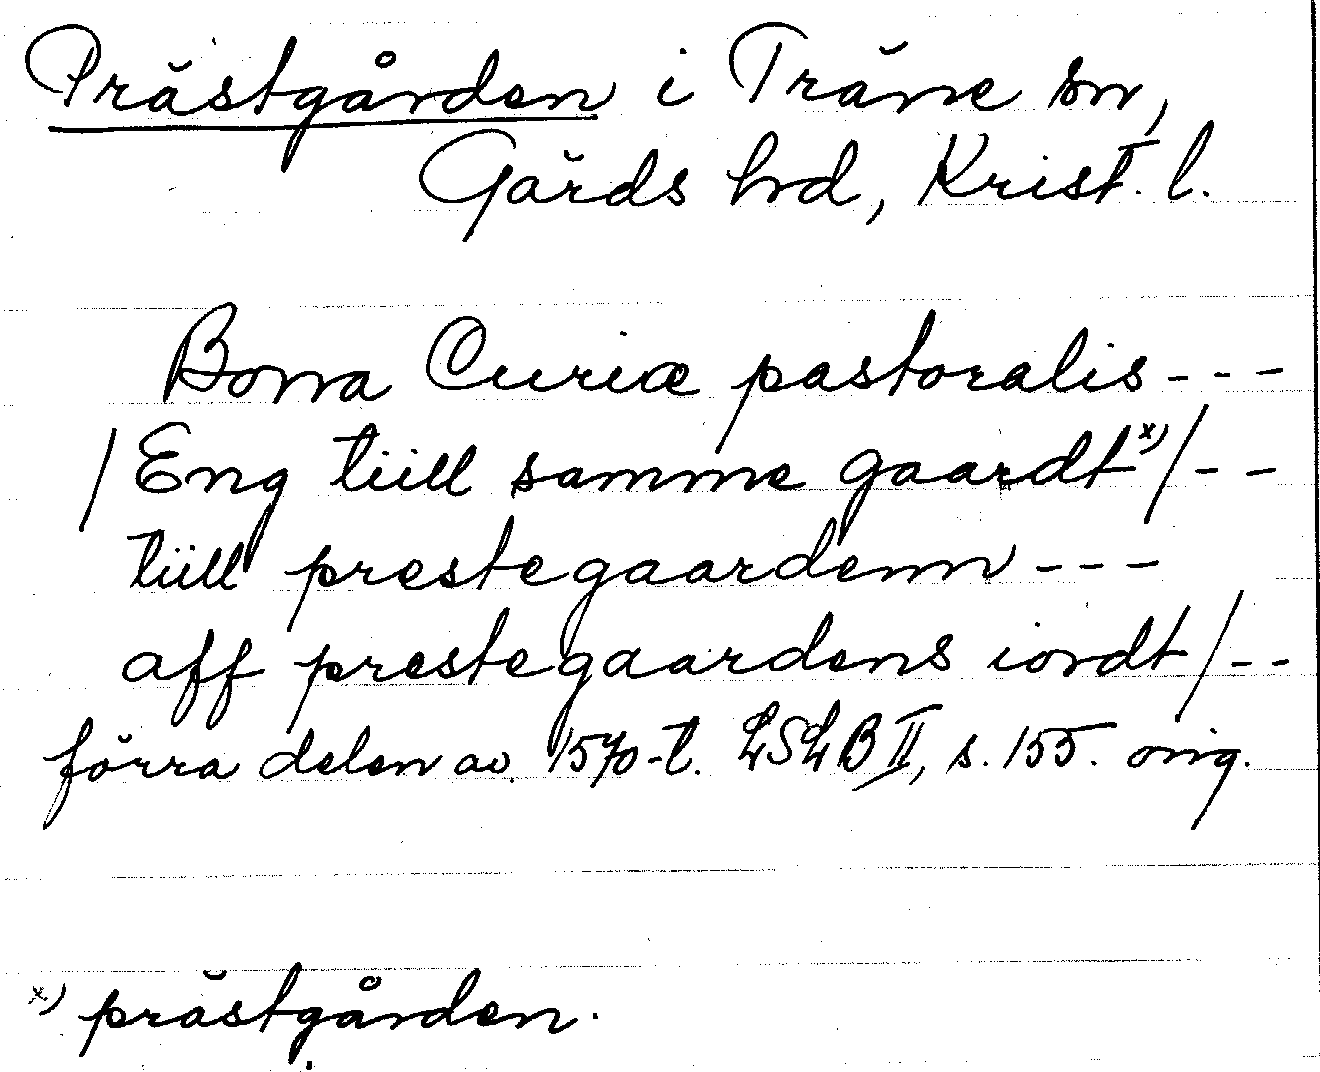 Prästgården i Träne sn,
Gärds hd, Krist. l.
Bona Curiæ pastoralis - - -
/ Eng tiill samme gaardt x) / - -
tiill prestegaardenn - - -
aff prestegaardens iordt / - -
förra delen av 1570-t. LSLB II, s. 155. orig.
x) prästgården.